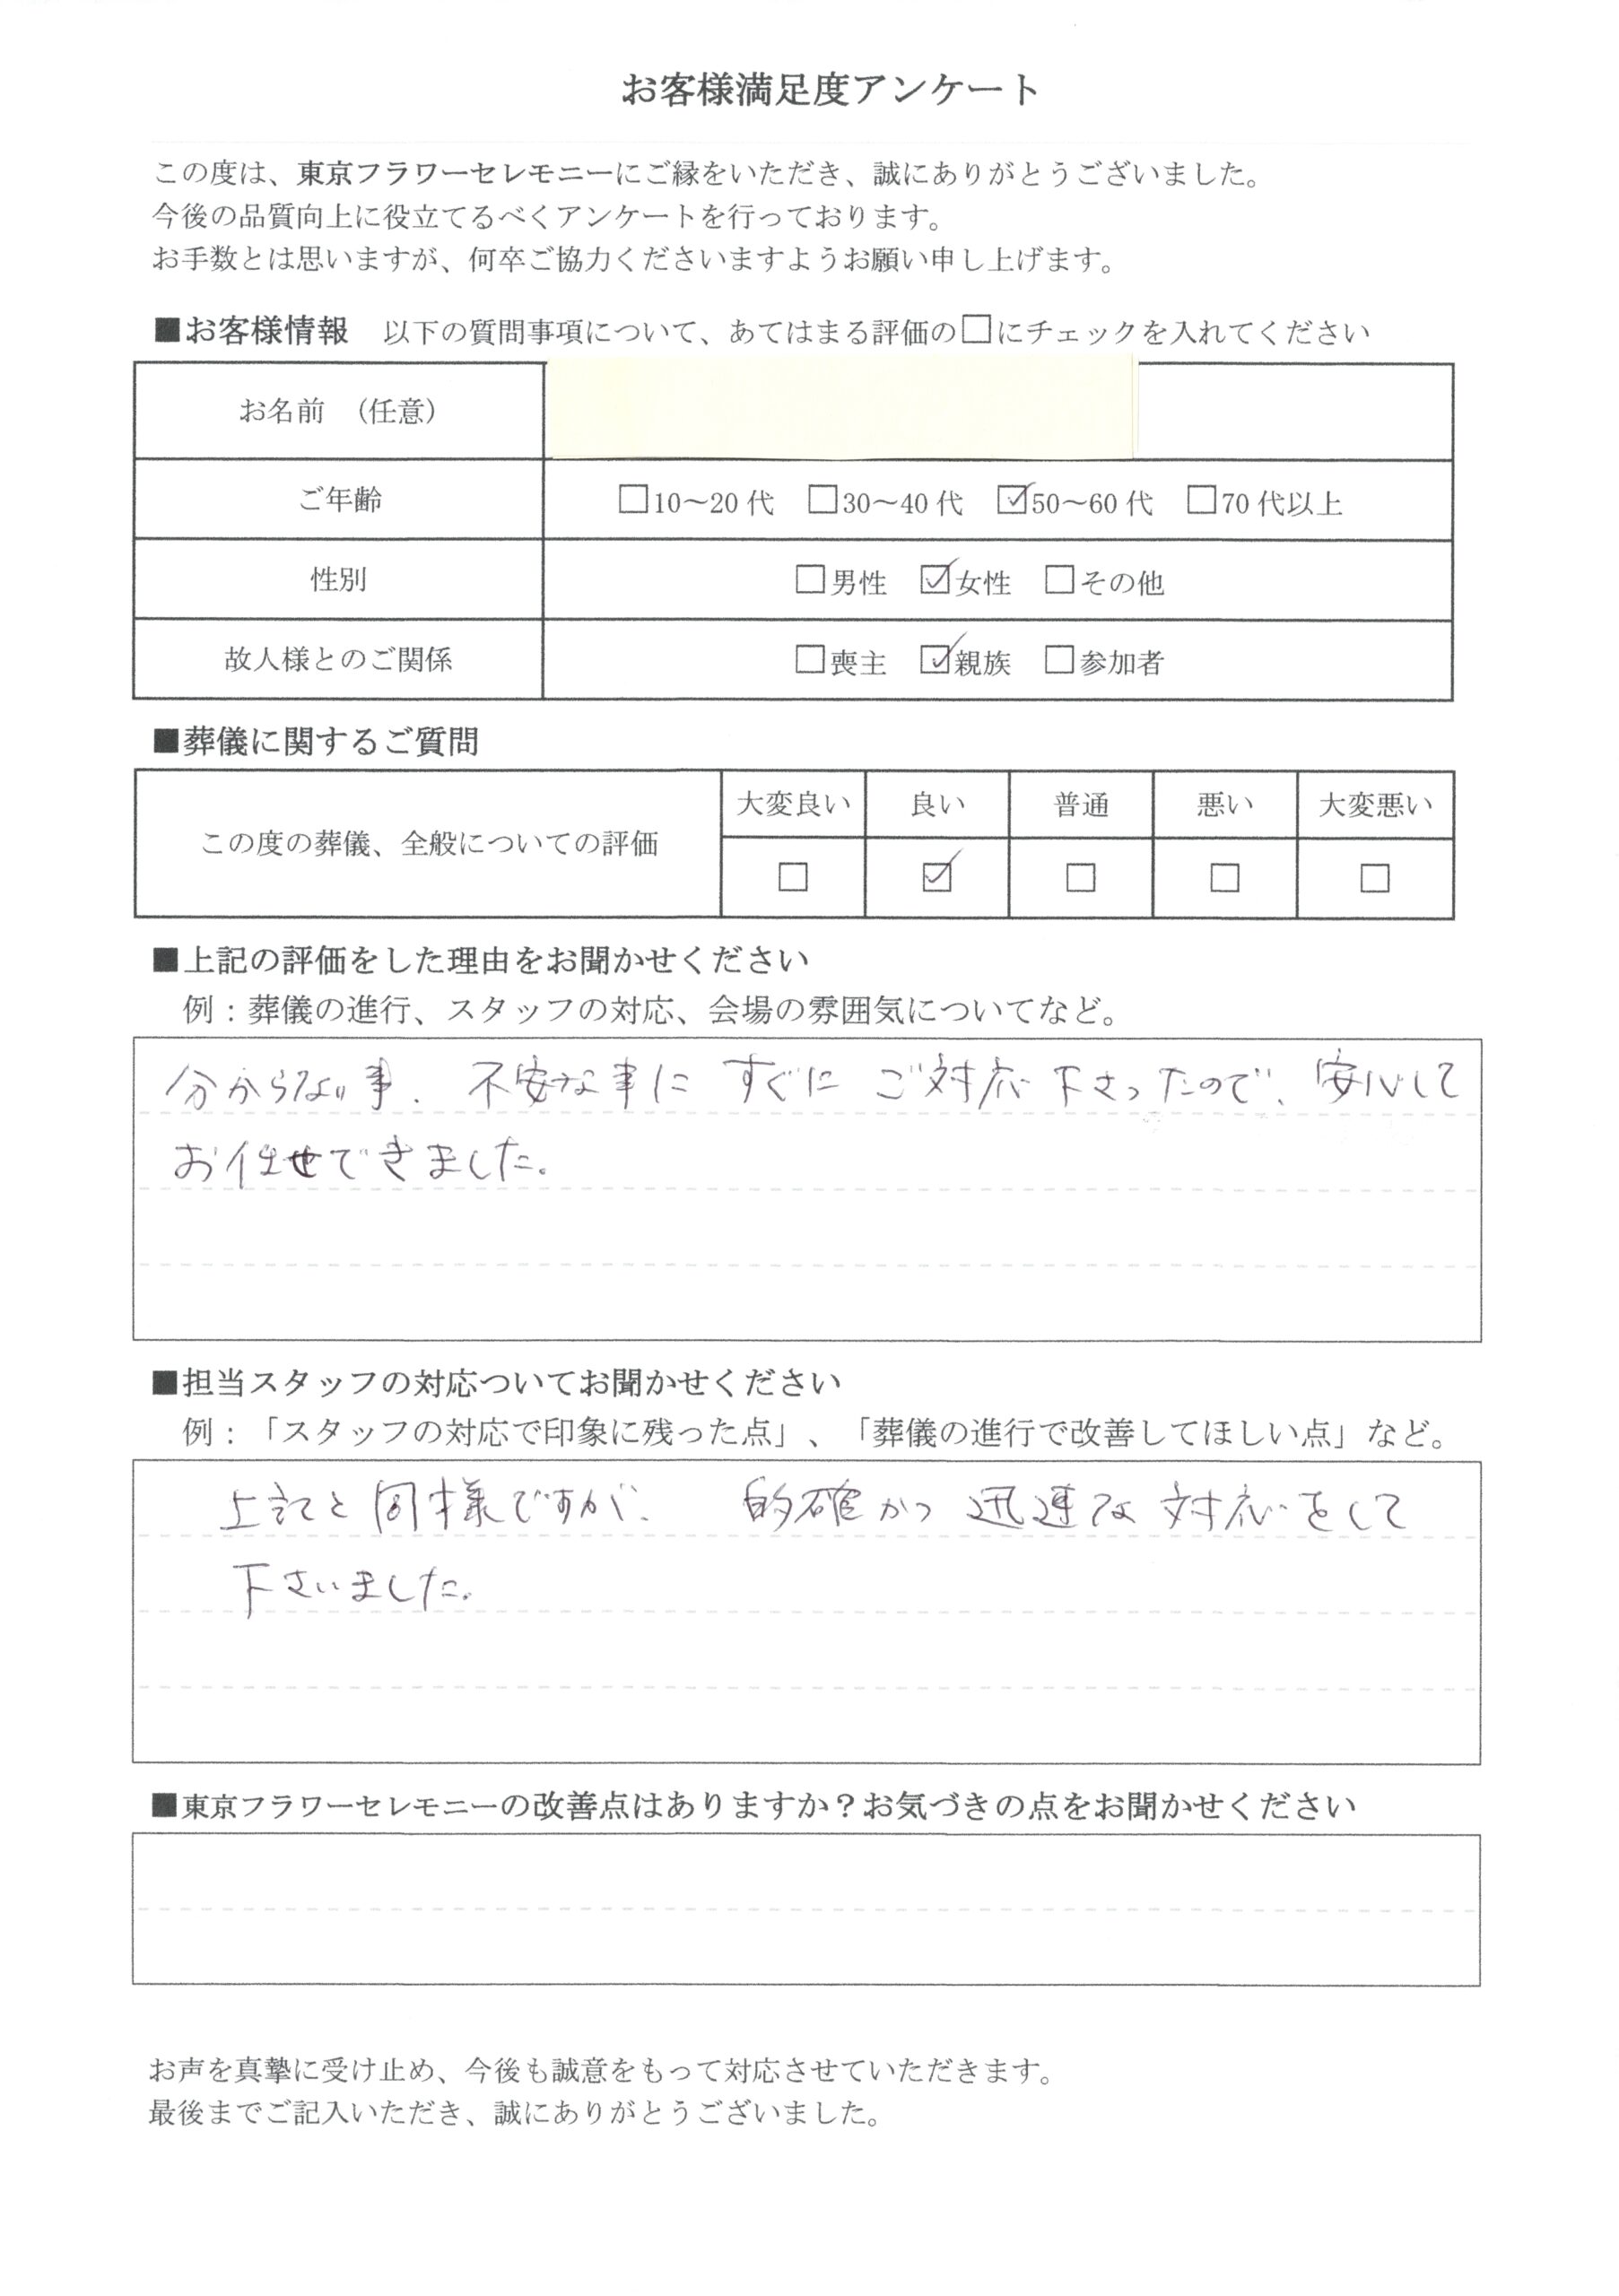 お客様満足度アンケート
この度は、東京フラワーセレモニーにご縁をいただき、誠にありがとうございました。
今後の品質向上に役立てるべくアンケートを行っております。
お手数とは思いますが、何卒ご協力くださいますようお願い申し上げます。
■お客様情報　以下の質問事項について、あてはまる評価の□にチェックを入れてください
お名前　（任意）
ご年齢　□10～20 代　□30～40 代　☑50～60 代　□70 代以上
性別　□男性　☑女性　□その他
故人様とのご関係　□喪主　☑親族　□参加者
■葬儀に関するご質問
大変良い　良い　普通　悪い　大変悪い
この度の葬儀、全般についての評価
□　☑　□　□　□
■上記の評価をした理由をお聞かせください
例：葬儀の進行、スタッフの対応、会場の雰囲気についてなど。
分からない事、不安な事に すぐに ご対応 下さったので、安心して
お任せできました。
■担当スタッフの対応ついてお聞かせください
例：「スタッフの対応で印象に残った点」、「葬儀の進行で改善してほしい点」など。
上記と同様ですが、 的確かつ 迅速な 対応をして
下さいました。
■東京フラワーセレモニーの改善点はありますか？お気づきの点をお聞かせください
お声を真摯に受け止め、今後も誠意をもって対応させていただきます。
最後までご記入いただき、誠にありがとうございました。